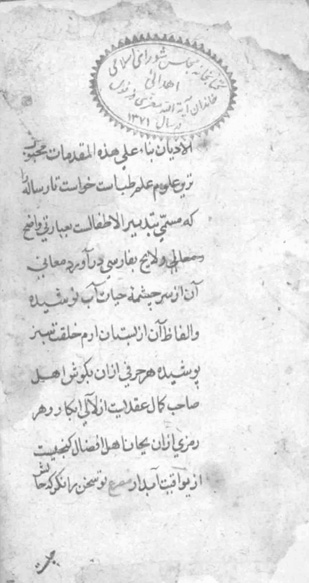 کتابخانه مجلس شورای اسلامی
اهدائی
خاندان آیة الله
در سال ۱۳۷۱
الادیان بناء علی هذه المقدمات محبوب
ترین علوم علم طب است خواست تا رساله
که مسمی بتدبیر الاطفالست بعبارتی واضح
و لایح بفارسی در آورد معانی
آن از سرچشمهٔ حیات آب نوشیده
والفاظ آن از بستان ارم خلقت
پوشیده هر حرفی از ان بکوش اهل
صاحب کمال عقدیست از لآلی ابکار و هر
رمزی از ان بجان اهل افضال کنجیست
از یواقیت آبدار مصرع تو سخن را نکر که حالش